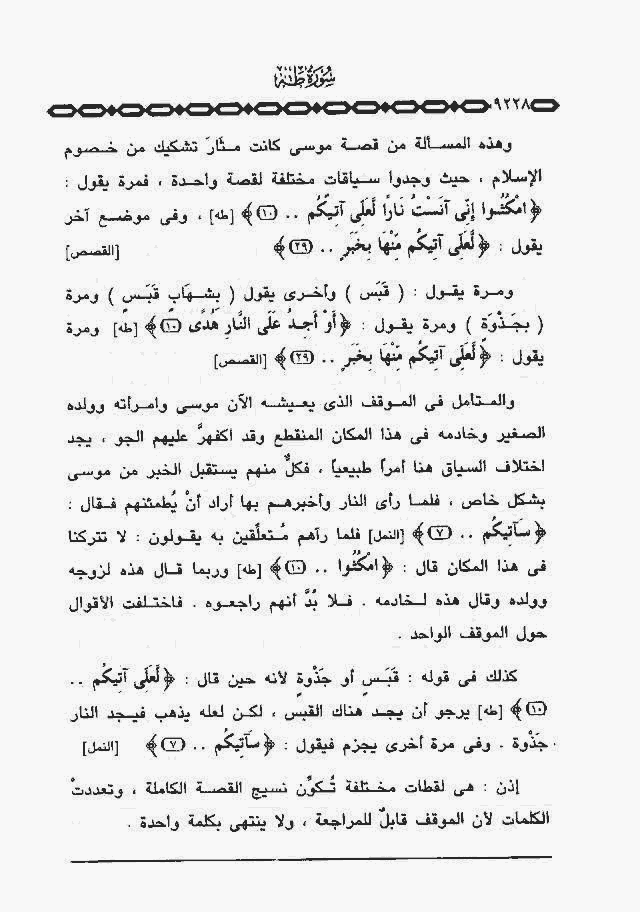 سُورَةُ طٰهٰ
٩٢٢٨
وهذه المسألة من قصة موسى كانت مـثَارَ تشكيك من خـصوم
الإسلام ، حيث وجدوا سـياقات مختلفة لقصة واحـدة ، فمرة يقول :
﴿ امْكُثُـوا إِنِّى آنَسْتُ نَارًا لَّعَلِّى آتِيكُم .. (١٠) ﴾ [طه] ، وفى موضـع آخر
يقول : ﴿ لَّعَلِّى آتِيكُم مِّنْهَا بِخَبَرٍ .. (٢٩) ﴾ [القصص]
ومـرة يقـول : ( قَبَس ) وأخـرى يقول ( بِشـهَابٍ قَبَـسٍ ) ومرة
( بجَـذْوَة ) ومرة يقـول : ﴿ أَوْ أَجِـدُ عَلَى النَّارِ هُدًى (١٠) ﴾ [طه] ومرة
يقول : ﴿ لَّعَلِّى آتِيكُم مِّنْهَا بِخَبَرٍ .. (٢٩) ﴾ [القصص]
والمـتأمل فى الموقف الذى يعـيشـه الآن موسى وامـرأته وولده
الصغير وخادمه فى هذا المكان المنقطع وقد اكفهرَّ عليهم الجو ، يجد
اختلاف السياق هنا أمراً طبيعياً ، فكلٌ منهم يستقبل الخبر من موسى
بشكل خاص ، فلمـا رأى النار وأخبرهـم بها أراد أنْ يُطمئنهم فـقال :
﴿ سَآتِيكُم .. (٧) ﴾ [النمل] فلما رآهم مُـتعلِّقين به يقـولون : لا تتركنا
فى هذا المكان قال : ﴿ امْكُثُوا .. (١٠) ﴾ [طه] وربما قـال هذه لزوجه
وولده وقال هذه لـخادمه . فـلا بُدَّ أنهم راجعـوه . فاختـلفت الأقوال
حول الموقف الواحد .
كذلك فى قوله : قَبَـسٍ أو جَذْوةٍ لأنه حين قال : ﴿ لَّعَلِّى آتِيكُم ..
(١٠) ﴾ [طه] يرجو أن يجـد هناك القبس ، لكـن لعله يذهب فيـجد النار
جَذْوة . وفى مرة أخرى يجزم فيقول : ﴿ سَآتِيكُم .. (٧) ﴾ [النمل]
إذن : هى لقطات مخـتلفة تُـكوِّن نسيج القصـة الكاملة ، وتعددتْ
الكلمات لأن الموقف قابلٌ للمراجعة ، ولا ينتهى بكلمة واحدة .